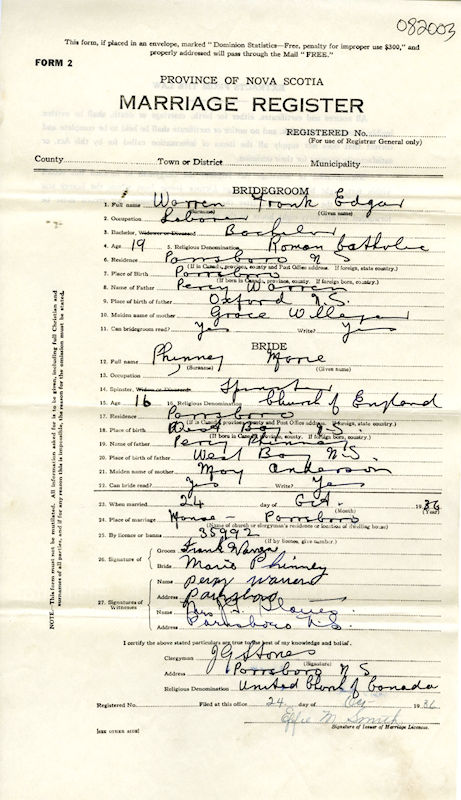 082003
This form, if placed in an envelope, marked "Dominion Statistics—Free, penalty for improper use $300," and
properly addressed will pass through the Mail "FREE."
FORM 2
PROVINCE OF NOVA SCOTIA
MARRIAGE REGISTER
REGISTERED No.
(For use of Registrar General only)
County Town or District Municipality
BRIDEGROOM
1. Full name Warren Frank Edgar
(Surname) (Given name)
2. Occupation Laborer
3. Bachelor, Widower or Divorced Bachelor
4. Age 19 5. Religious Denomination Roman Catholic
6. Residence Parrsboro N S
(If in Canada, province, county and Post Office address. If foreign, state country.)
7. Place of Birth Parrsboro
(If born in Canada, province, county. If foreign born, country.)
8. Name of Father Percy Warren
9. Place of birth of father Oxford N.S.
10. Maiden name of mother Grace
11. Can bridegroom read? Yes Write? Yes
BRIDE
12. Full name Phinney Marie
(Surname) (Given name)
13. Occupation
14. Spinster, Widow or Divorced Spinster
15. Age 16 16. Religious Denomination Church of England
17. Residence Parrsboro
(If in Canada, province, county and Post Office address. If foreign, state country.)
18. Place of birth West Bay N.S.
(If born in Canada, province, county. If foreign born, country.)
19. Name of father Percy Phinney
20. Place of birth of father West Bay N.S.
21. Maiden name of mother May Anderson
22. Can bride read? Yes Write? Yes
23. When married 24 day of Oct. 1936
(Month) (Year)
24. Place of marriage House — Parrsboro
(Name of church or clergyman's residence or location of dwelling house)
25. By licence or banns 35992
(If by licence, give number.)
26. Signature of Groom Frank Warren
Bride Marie Phinney
27. Signatures of Witnesses Name Percy Warren
Address Parrsboro
Name Mrs J. G.
Address Parrsboro N.S.
I certify the above stated particulars are true to the best of my knowledge and belief.
Clergyman J G Stones
(Signature)
Address Parrsboro N S
Religious Denomination United Church of Canada
Registered No. Filed at this office 24 day 1936
Effie M. Smith
[SEE OTHER SIDE] Signature of Issuer of Marriage Licenses.
NOTE.—This form must not be mutilated. All information asked for is to be given, including full Christian and
surnames of all parties, and if for any reason this is impossible, the reason for the omission must be stated.